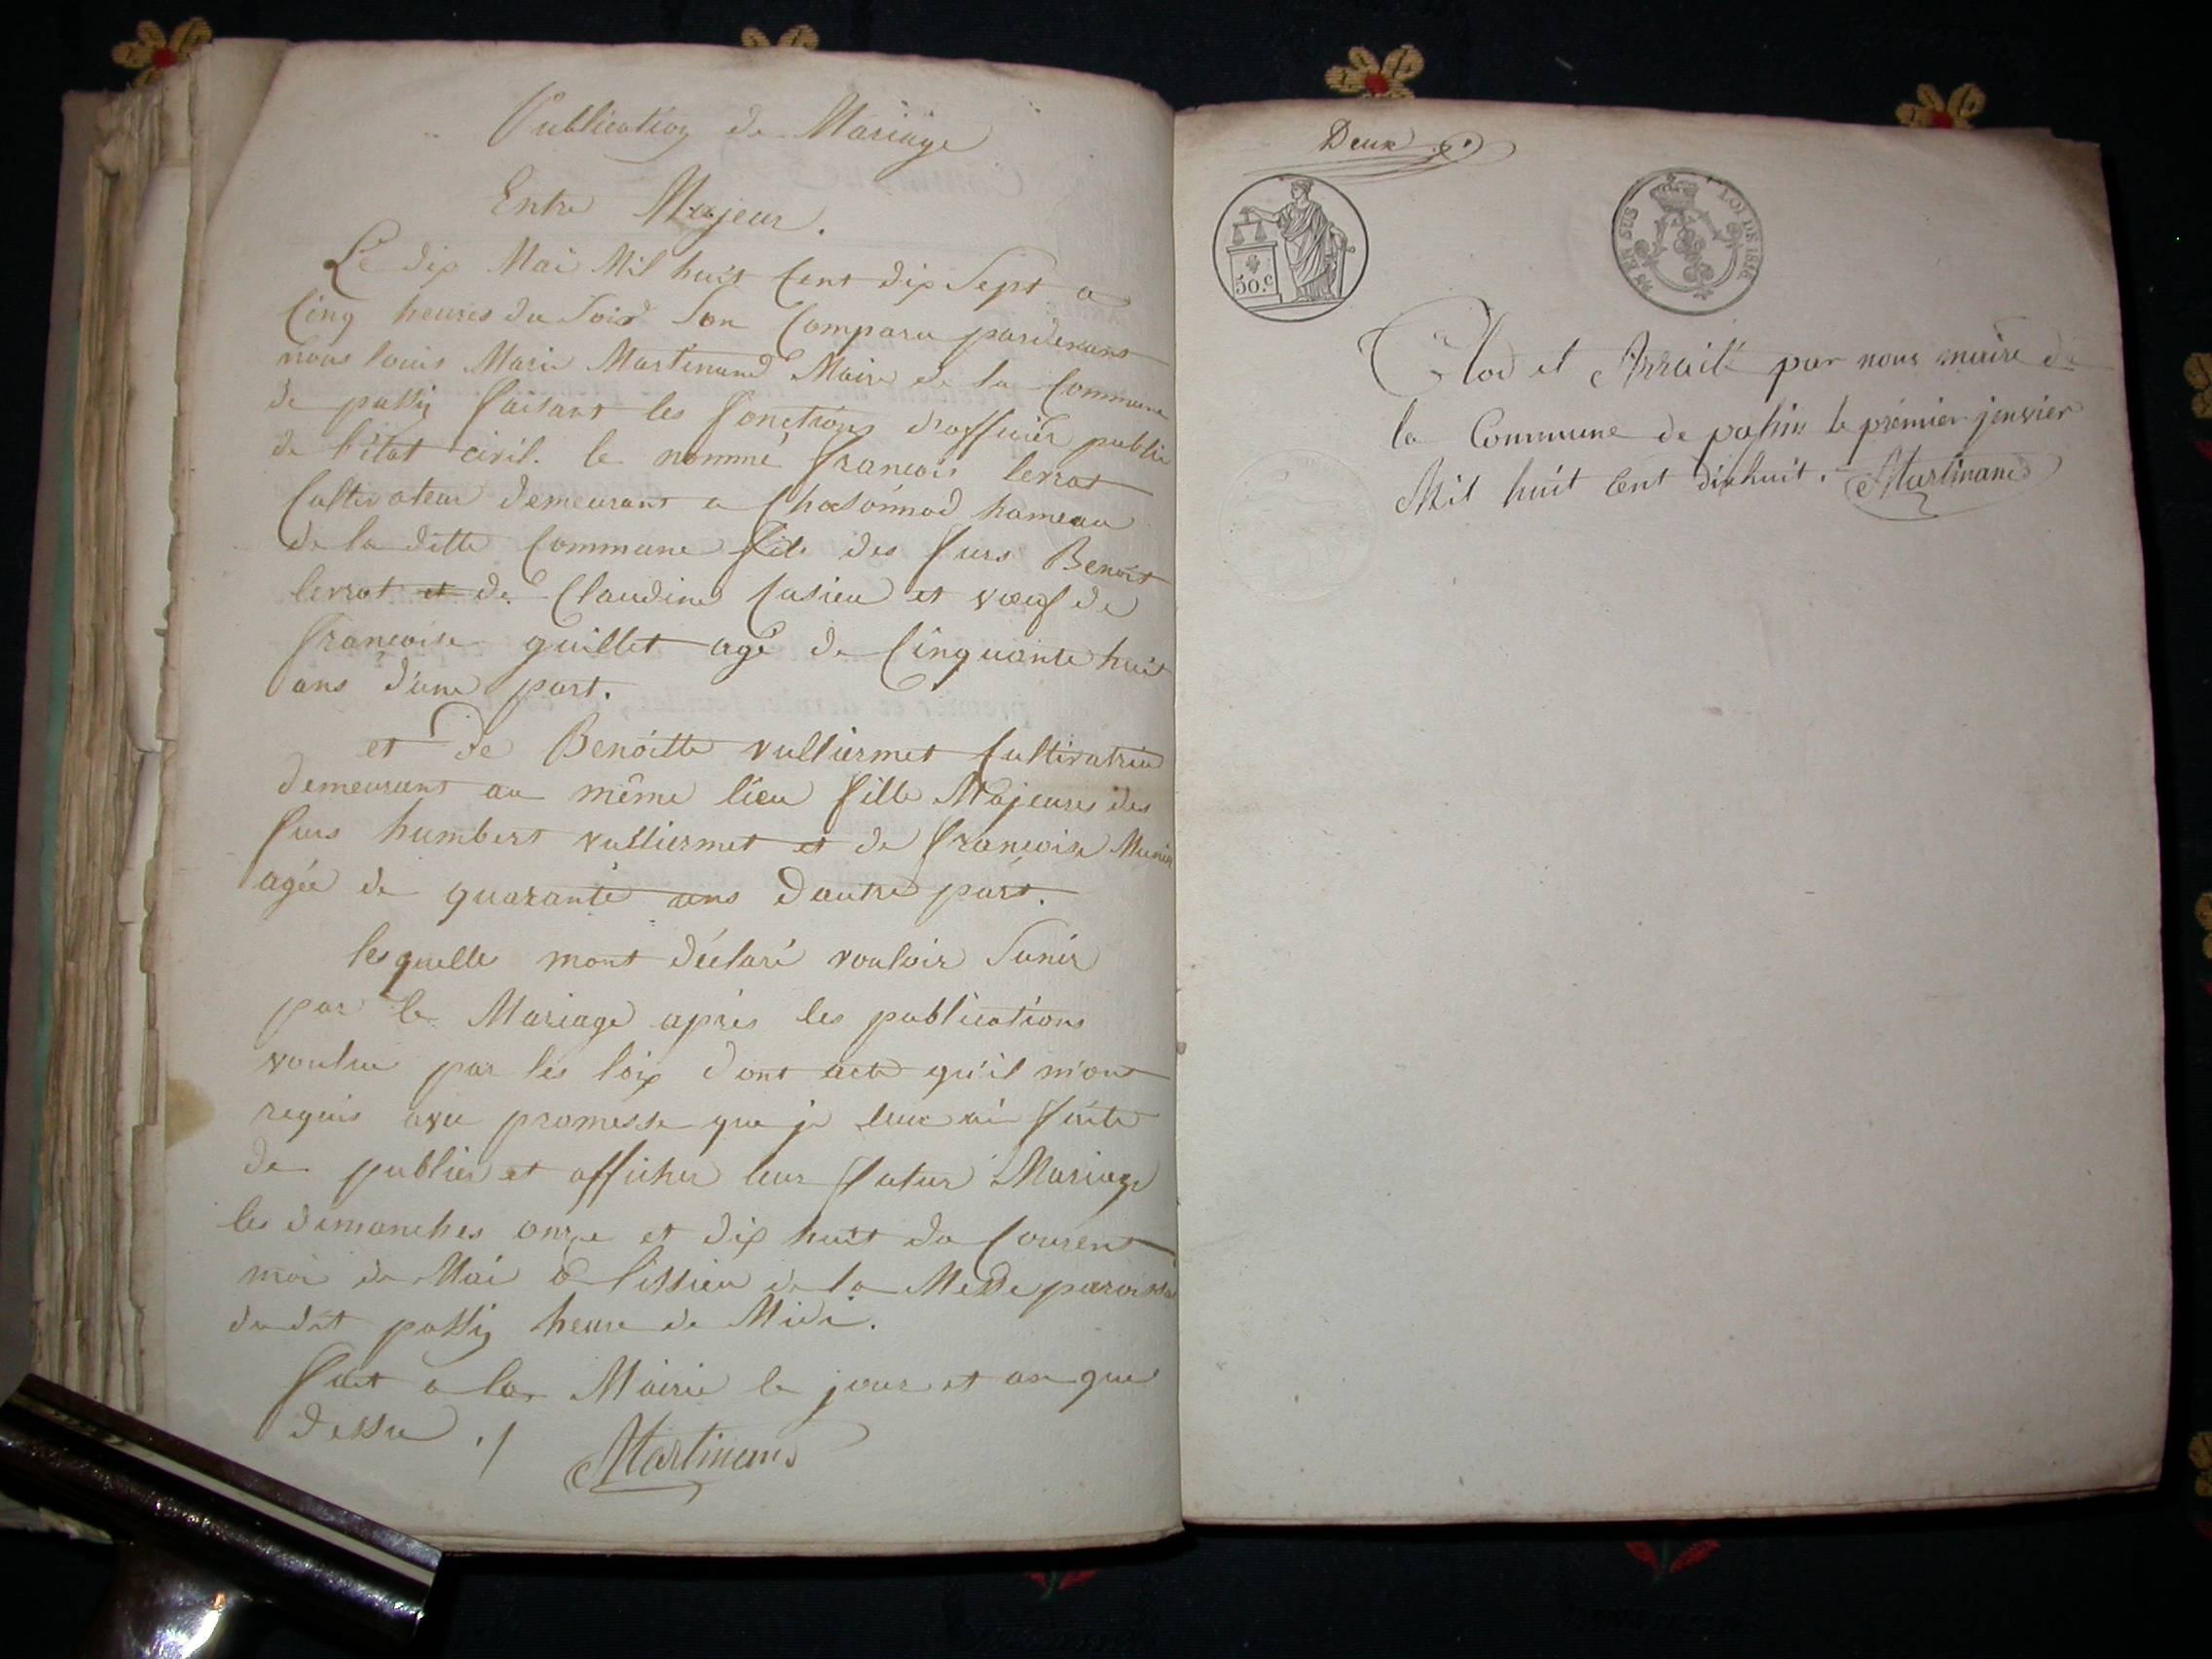 Publication de Mariage
Entre Majeur.
Le dix Mai Mil huit Cent dix Sept a
Cinq heures du Soir Son Comparu pardevant
nous louis Marie Martinand Maire de la Commune
de passin faisant les fonctions d'officier public
de l'état civil. le nommé francois
Cultivateur demeurant a hameau
de la ditte Commune fils des furs Benoit
et de Claudine et voeuf de
francoise guillet agé de Cinquante huit
ans d'une part.
et de Benoitte vulliermet Cultivatrice
demeurant au même lieu fille Majeures des
furs humbert vulliermet et de francoise
agée de quarante ans dautre part.
lesquelle mont déclaré vouloir Sunir
par le Mariage après les publications
voulue par les loix dont acte qu'il m'ont
requis avec promesse que je leur ai faite
de publier et afficher leur futur Mariage
les dimanches onze et dix huit du Courent
moi de Mai a lissieu de la Messe
du dit passin heure de Midi.
fait a la Mairie le jour et an que
dessu ./ Martinand
Deux
50.c
EN SUS LOI DE 1816
Clod et Arraité par nous maire de
la Commune de passin le prémier jenvier
Mil huit Cent dixhuit. Martinand